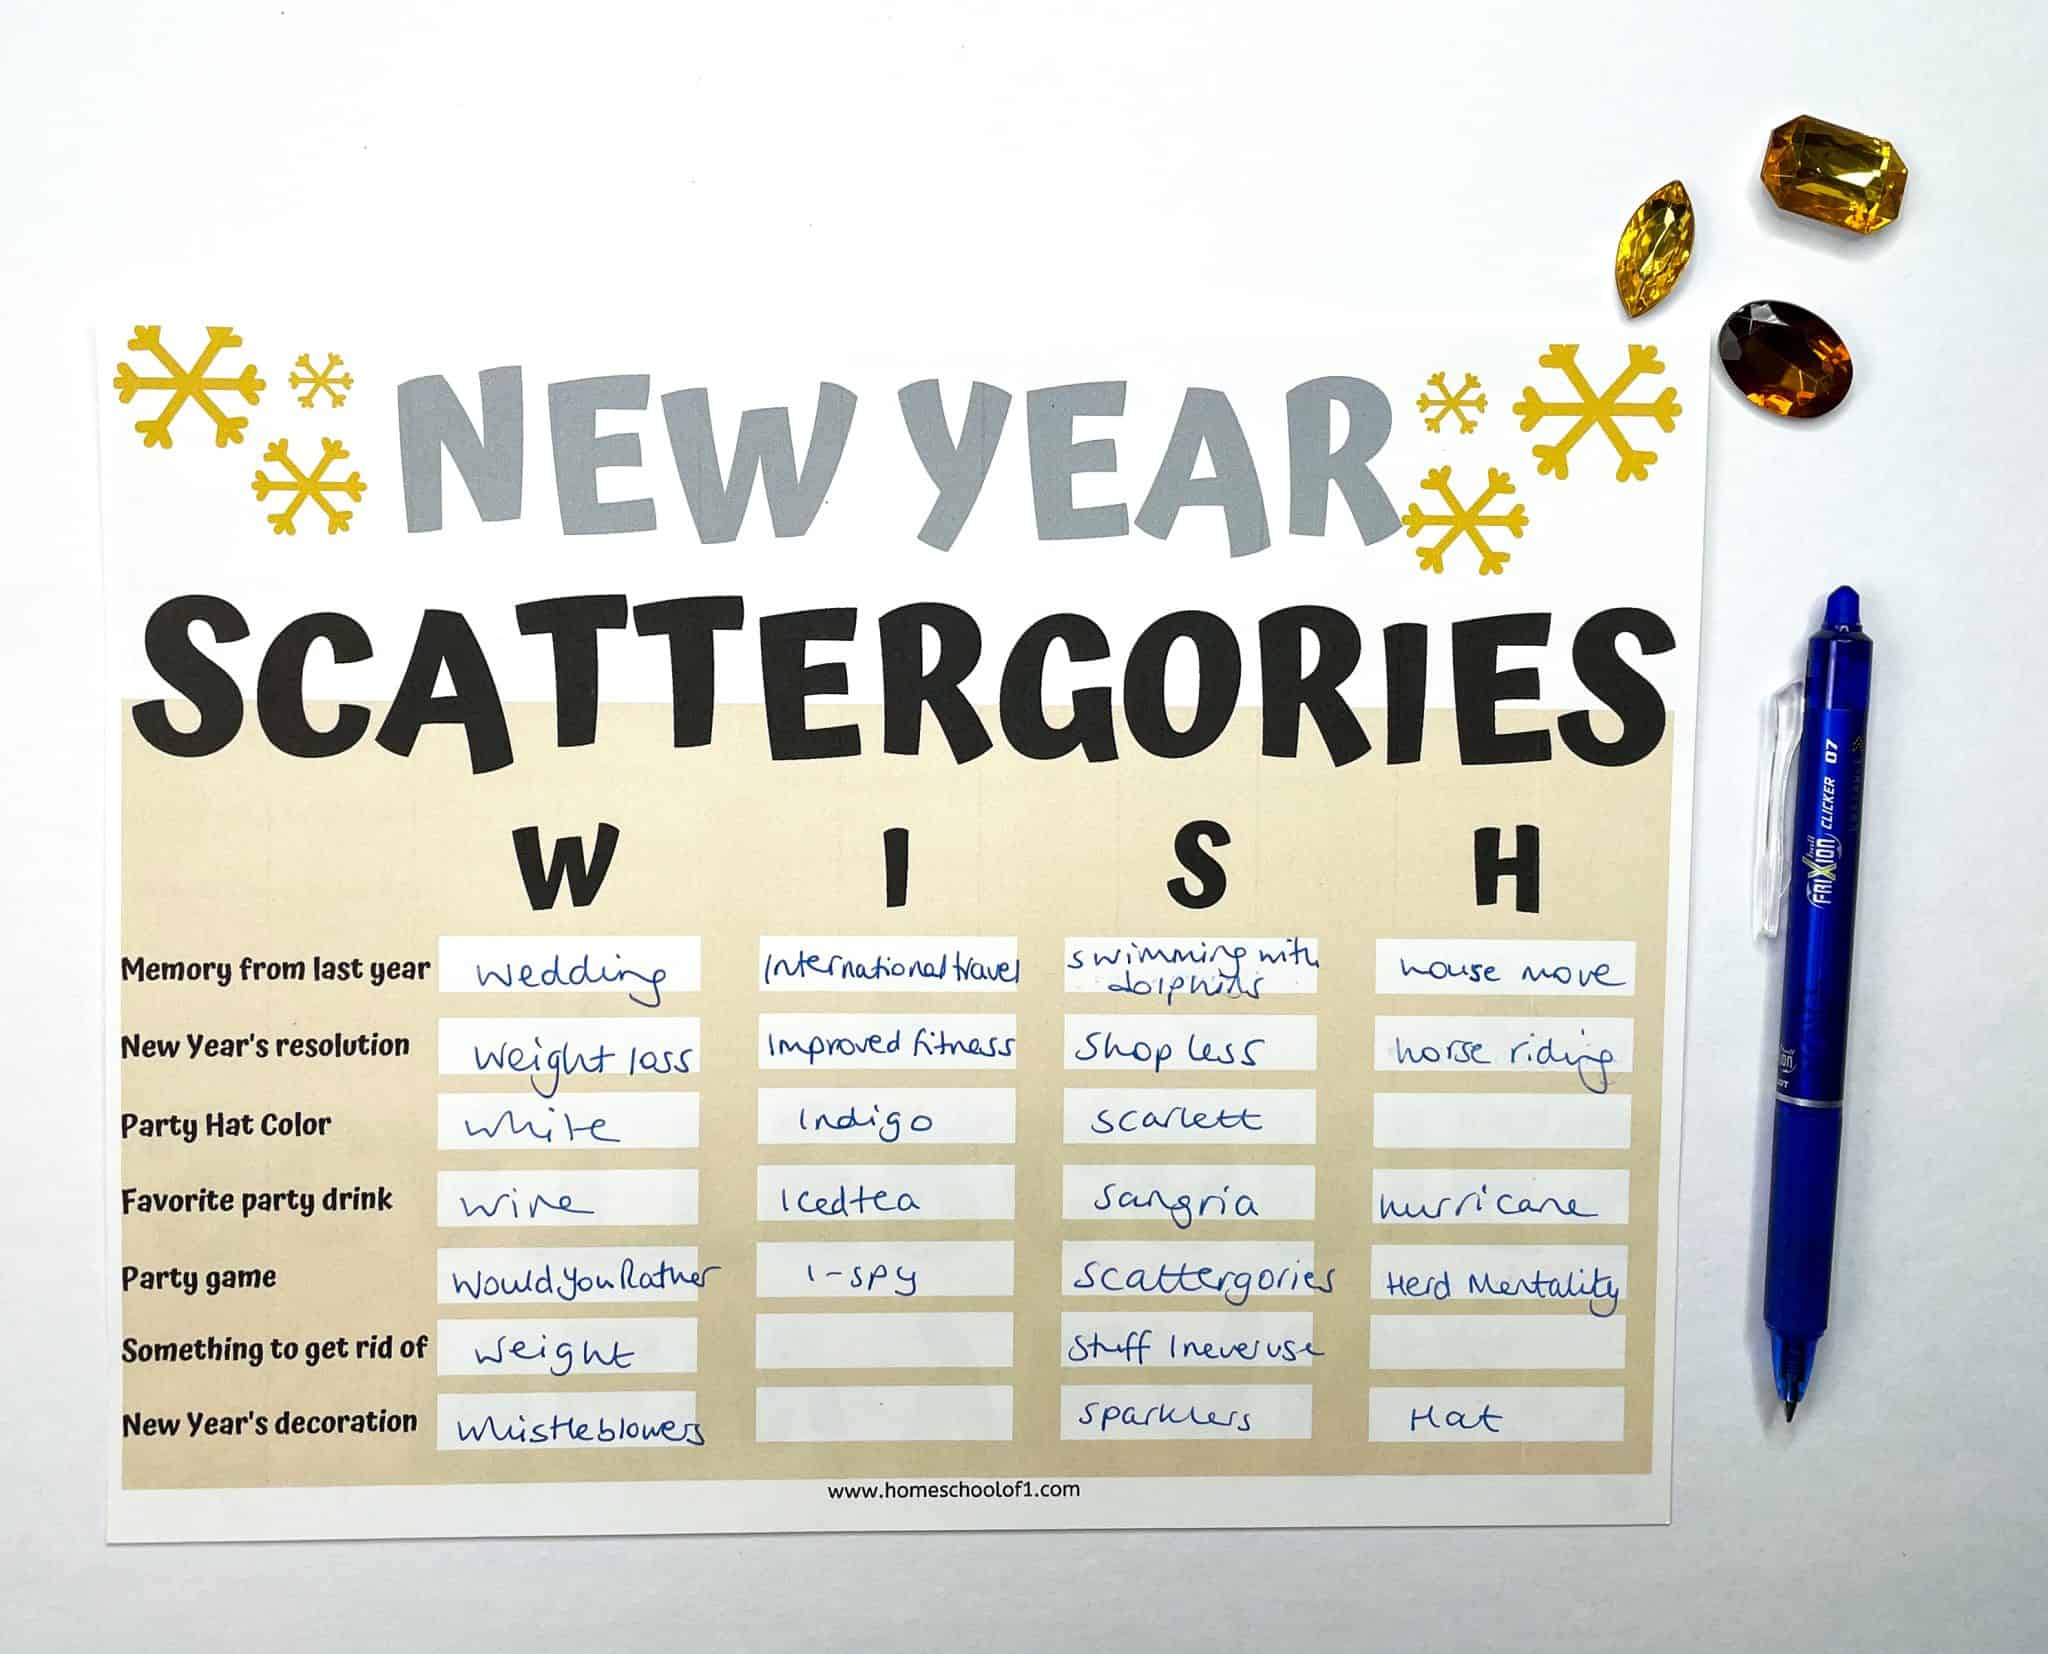 NEW YEAR
SCATTERGORIES
W I S H
Memory from last year wedding International travel swimming with dolphins house move
New Year's resolution weight loss Improved fitness Shop less horse riding
Party Hat Color white Indigo scarlett
Favorite party drink wine Iced tea Sangria hurricane
Party game Would You Rather I-spy Scattergories Herd Mentality
Something to get rid of weight Stuff I never use
New Year's decoration whistleblowers Sparklers Hat
www.homeschoolof1.com
FRIXION CLICKER 07